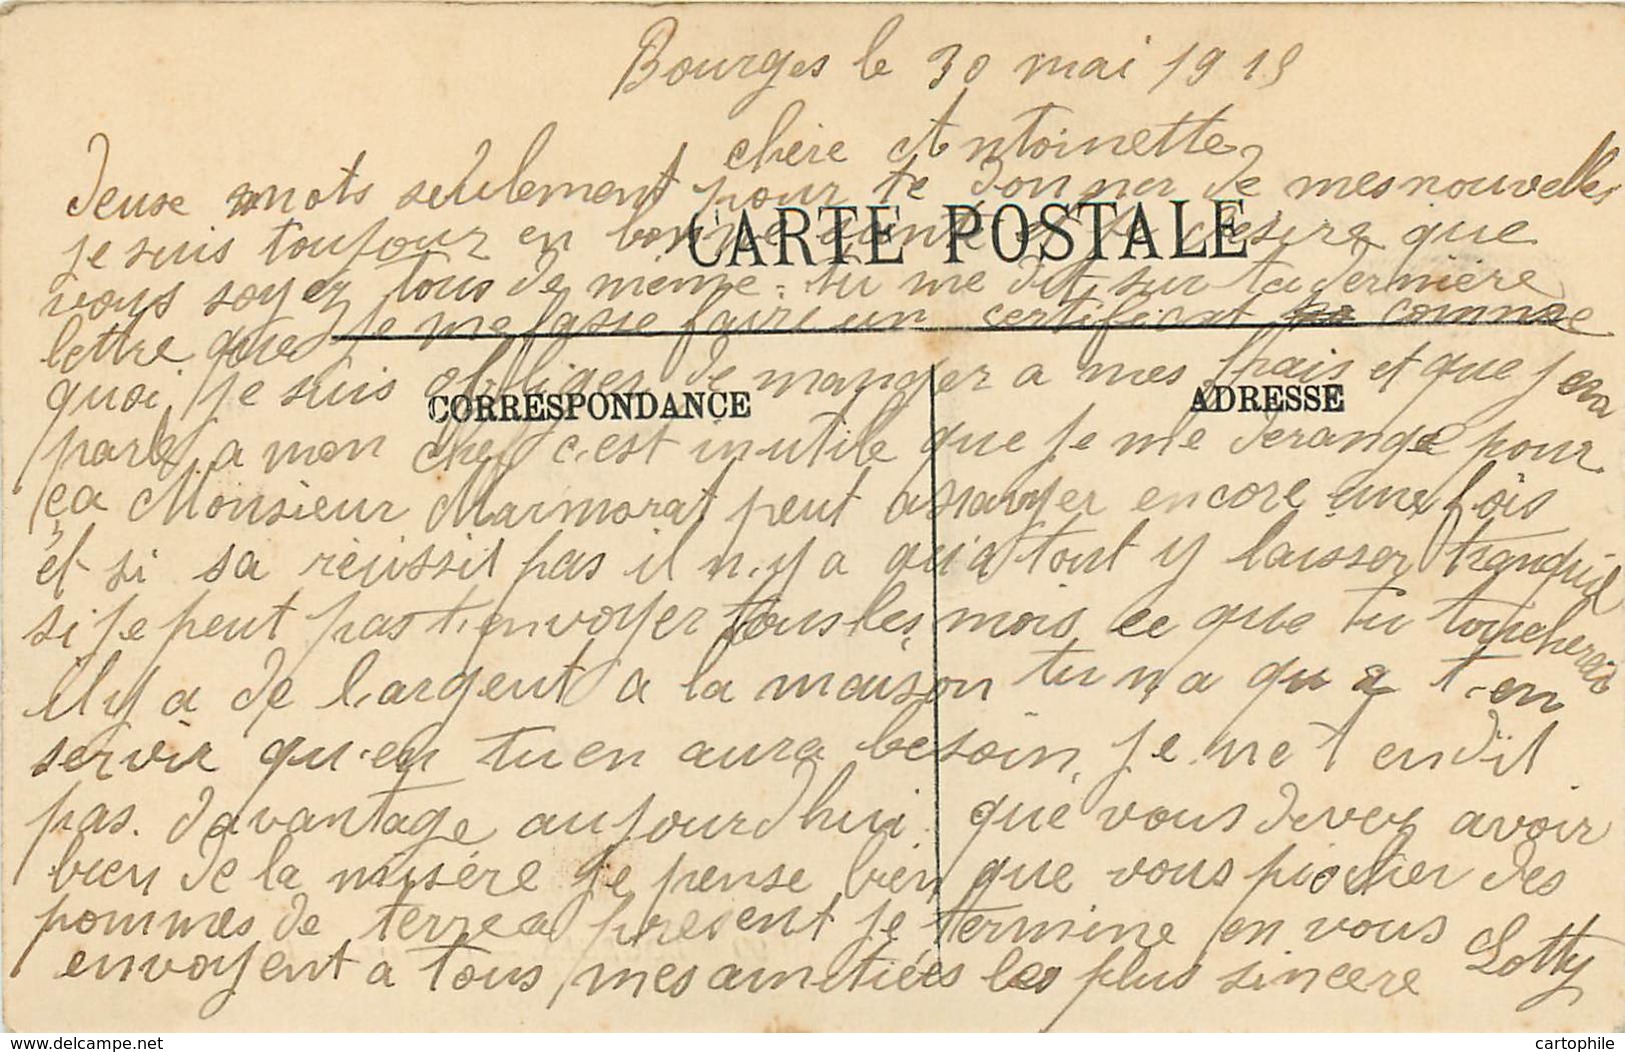 Bourges le 30 mai 1915
chère Antoinette
deuse mots seulement pour te donner de mes nouvelles
je suis toujour en bonne santé et je desire que
CARTE POSTALE
vous soyez tous de même. tu me dit sur ta dernière
lettre que je me fasse faire un certificat comme
quoi je suis obliger de manger a mes frais et que j en a
CORRESPONDANCE
ADRESSE
parle a mon chef c.est inutile que je me derange pour
ça Monsieur Marmorat peut assayer encore une fois
et si sa réussit pas il n.y a qu'a tout y laisser tranquil
si je peut pas t.envoyer tous les mois ce que tu toucherais
il y a de l.argent a la maison tu n a qu a t-en
servir qu.en tu en aura besoin, je ne t en dit
pas. davantage aujourdhui. que vous devez avoir
bien de la misère je pense bien que vous piocher des
pommes de terre a present je termine en vous
envoyent a tous mes amitiées les plus sincere Lotty
© www.delcampe.net
cartophile